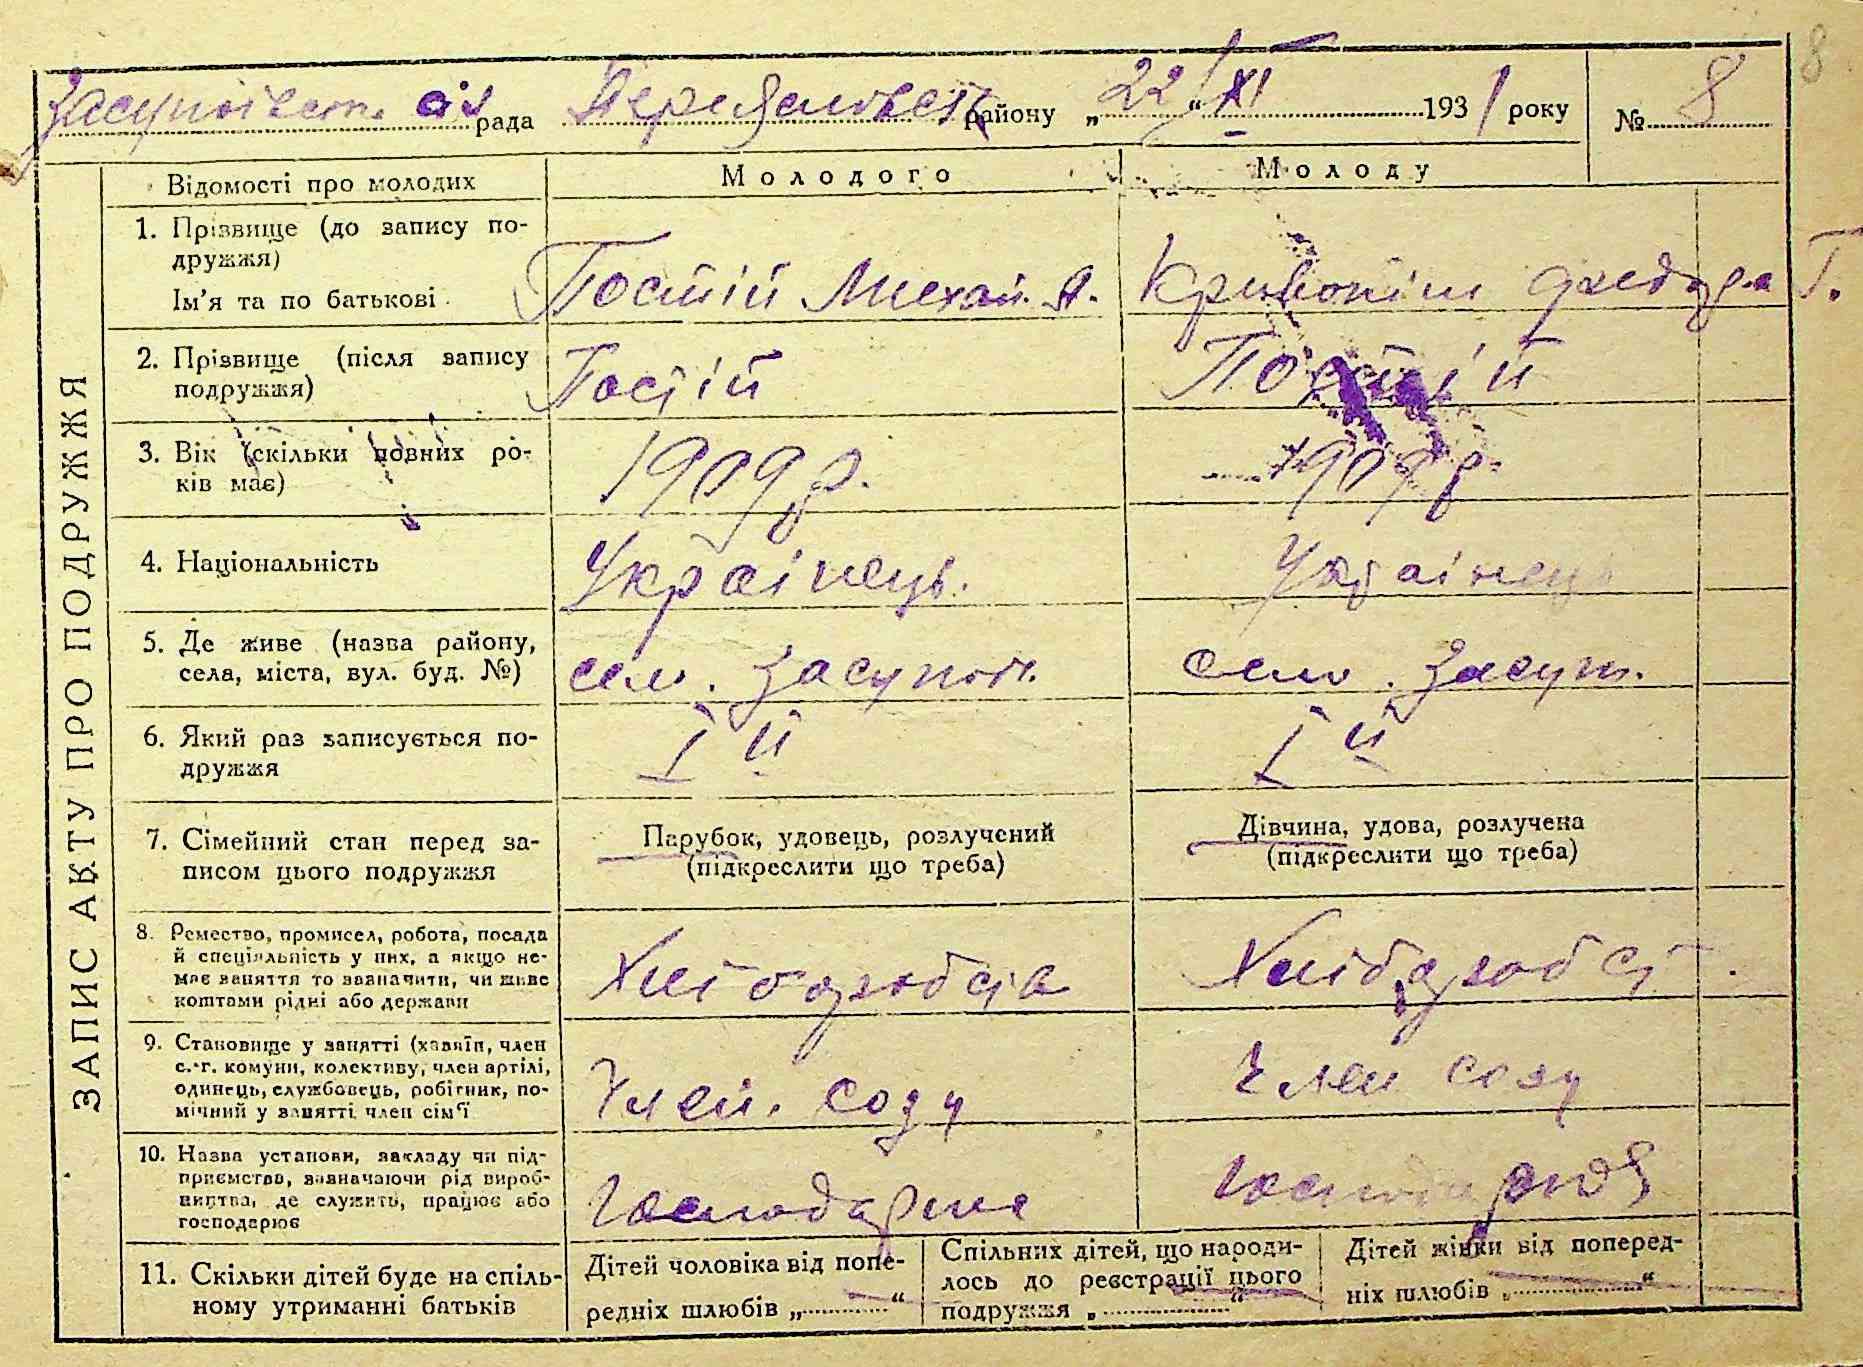 Засупоївсь. сіл рада Переяславськ району „22“ XI 1931 року № 8
8
ЗАПИС АКТУ ПРО ПОДРУЖЖЯ
Відомості про молодих
Молодого
Молоду
1. Прізвище (до запису по-
дружжя)
Ім'я та по батькові
Постій Михай. Я.
Кривопіш Г.
2. Прізвище (після запису
подружжя)
Постій
Постій
3. Вік (скільки повних ро-
ків має)
1909 р.
1909 р.
4. Національність
Українець.
Українець
5. Де живе (назва району,
села, міста, вул. буд. №)
село. Засупої.
село. Засуп.
6. Який раз записується по-
дружжя
I й
I й
7. Сімейний стан перед за-
писом цього подружжя
Парубок, удовець, розлучений
(підкреслити що треба)
Дівчина, удова, розлучена
(підкреслити що треба)
8. Ремество, промисел, робота, посада
й спеціяльність у них, а якщо не-
має заняття то зазначити, чи живе
коштами рідні або держави
Хліборобств
Хліборобст.
9. Становище у занятті (хазяїн, член
с.-г. комуни, колективу, член артілі,
одинець, службовець, робітник, по-
мічний у занятті член сім'ї
Член. созу
Член созу
10. Назва установи, закладу чи під-
приємства, зазначаючи рід вироб-
ництва, де служить, працює або
господарює
11. Скільки дітей буде на спіль-
ному утриманні батьків
Дітей чоловіка від попе-
редніх шлюбів „ “
Спільних дітей, що народи-
лось до реєстрації цього
подружжя „ “
Дітей жінки від поперед-
ніх шлюбів „ “